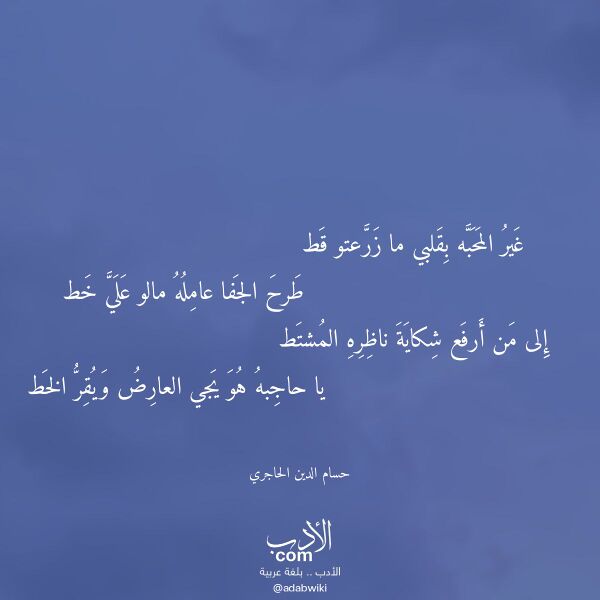 غَيرُ المَحَبَّه بِقَلبي ما زَرَّعتو قَط
طَرحَ الجَفا عامِلُهُ مالو عَلَيَّ خَط
إِلى مَن أَرفَع شِكايَةَ ناظِرِهِ المُشتَط
يا حاجِبهُ هُوَ يَجي العارِضُ وَيُقِرُّ الخَط
حسام الدين الحاجري
الأدب
com
الأدب .. بلغة عربية
@adabwiki